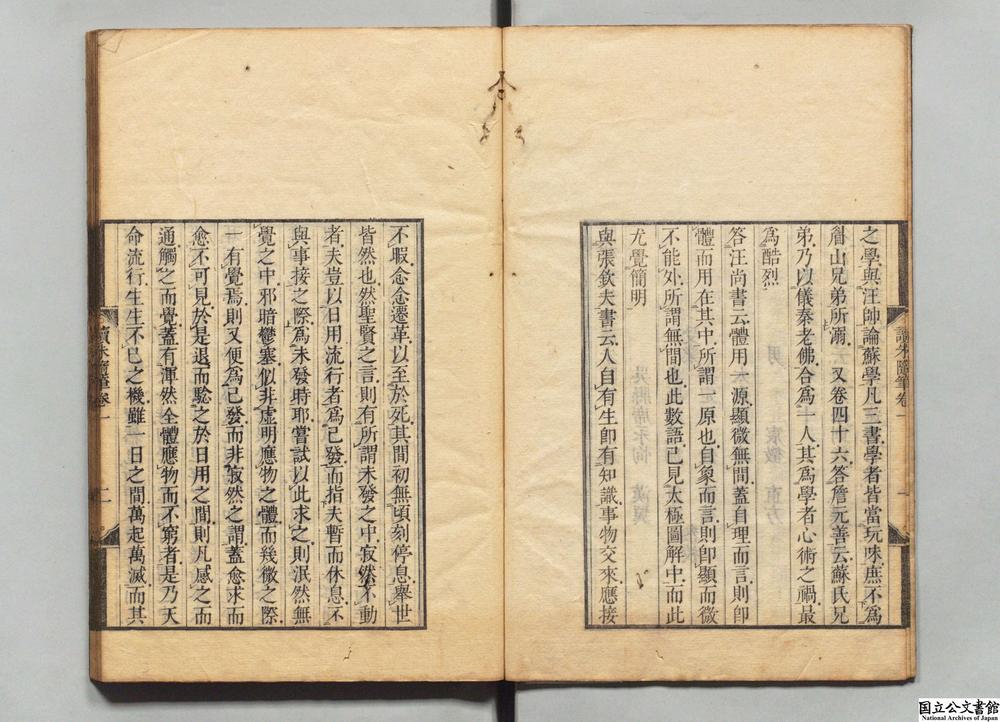 之學與汪帥論蘇學凡三書學者皆當玩味庶不為
眉山兄弟所溺 又卷四十六答詹元善云蘇氏兄
弟乃以儀秦老佛合為一人其為學者心術之禍最
為酷烈
答汪尚書云體用一源顯微無間蓋自理而言則即
體而用在其中所謂一原也自象而言則即顯而微
不能外所謂無間也此數語已見太極圖解中而此
尤覺簡明
與張欽夫書云人自有生即有知識事物交來應接
讀朱隨筆卷一
一
不暇念念遷革以至於死其間初無頃刻停息舉世
皆然也然聖賢之言則有所謂未發之中寂然不動
者夫豈以日用流行者為已發而指夫暫而休息不
與事接之際為未發時耶嘗試以此求之則泯然無
覺之中邪暗鬱塞似非虛明應物之體而幾微之際
一有覺焉則又便為已發而非寂然之謂蓋愈求而
愈不可見於是退而驗之於日用之間則凡感之而
通觸之而覺蓋有渾然全體應物而不窮者是乃天
命流行生生不已之機雖一日之間萬起萬滅而其
讀朱隨筆卷一
二
国立公文書館
National Archives of Japan